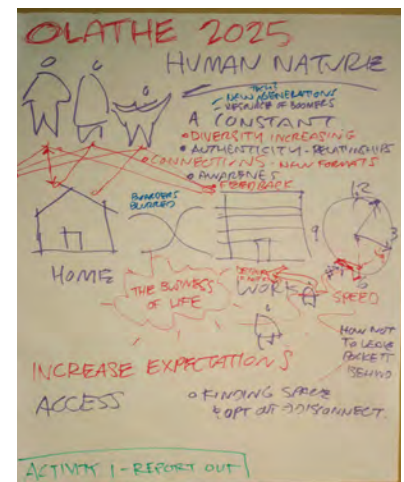 OLATHE 2025
HUMAN NATURE
NEW GENERATIONS
OF BOOMERS
A CONSTANT
DIVERSITY INCREASING
AUTHENTICITY - RELATIONSHIPS
CONNECTIONS - NEW FORMATS
AWARENES
FEEDBACK
BOARDERS
BLURRED
12
9
3
6
HOME
THE BUSINESS
OF LIFE
WORK
SPEED
HOW NOT
TO LEAVE
POCKETS
BEHIND
INCREASE EXPECTATIONS
ACCESS
FINDING SPACE
OPT OUT DISCONNECT.
ACTIVITY 1 - REPORT OUT